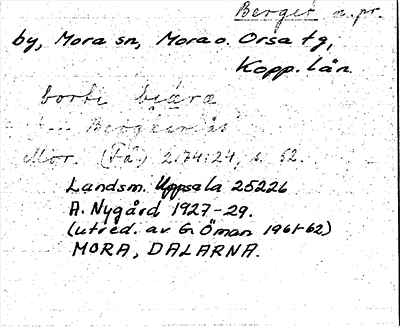 Berget n. pr.
by, Mora sn, Mora o. Orsa tg,
Kopp. län.
borti
Mor. (Få) 2174:24, s. 52.
Landsm. Uppsala 25226
A. Nygård 1927-29.
(utred. av G. Öman 1961-62)
MORA, DALARNA.